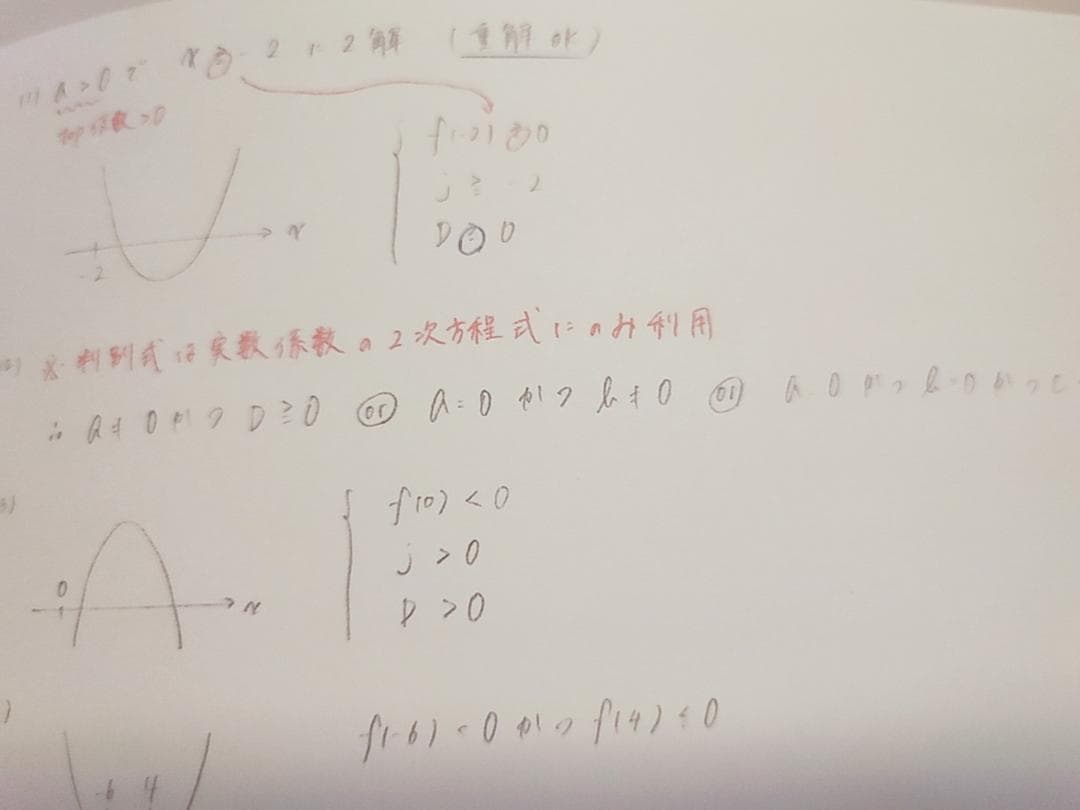 (1) a > 0 で x ≧ -2 に 2解 (重解OK)
top係数>0
f(-2) ≧ 0
j ≧ -2
D ≧ 0
x
-2
(2) ※判別式は実数係数の2次方程式にのみ利用
∴ a ≠ 0 かつ D ≧ 0 or a = 0 かつ b ≠ 0 or a = 0 かつ b = 0 かつ c
f(0) < 0
j > 0
0
D > 0
x
f(-6) < 0 かつ f(4) < 0
-6 4